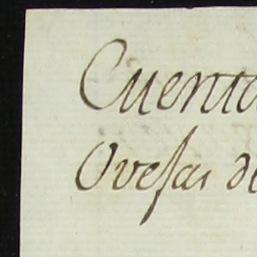 Cuenta
Ovejas de